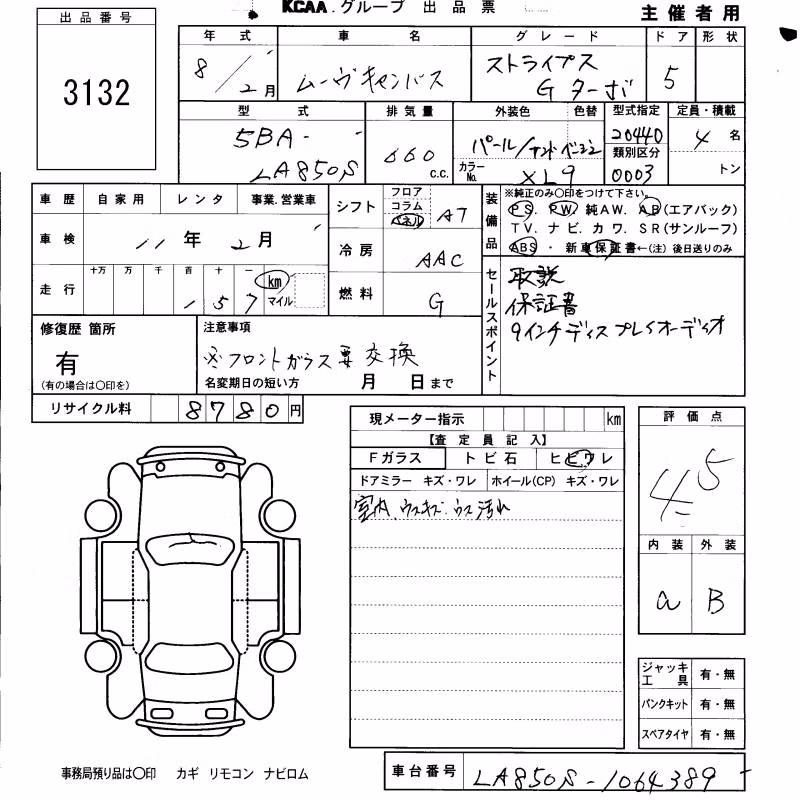 KCAA.グループ 出品票
主催者用
出品番号
3132
年式 車名 グレード ドア 形状
8/2月 ムーヴキャンバス ストライプス Gターボ 5
型式 排気量 外装色 色替 型式指定 定員・積載
5BA- LA850S 660 c.c. パール/サンドベージュ カラーNo. XL9 20440 類別区分 0003 4名 トン
車歴 自家用 レンタ 事業.営業車
車検 11年2月
走行 十万 万 千 百 十 一 157 km マイル
シフト フロア コラム パネル AT
冷房 AAC
燃料 G
装備品
※純正のみ○印をつけて下さい。
PS. PW. 純AW. AB(エアバック)
TV. ナビ. カワ. SR(サンルーフ)
ABS・新車保証書←(注)後日送りのみ
セールスポイント
取説
保証書
9インチディスプレイオーディオ
修復歴 箇所
有
(有の場合は○印を)
注意事項
※フロントガラス要交換
名変期日の短い方 月 日まで
リサイクル料 8780円
現メーター指示 km
【査定員記入】
Fガラス トビ石 ヒビワレ
ドアミラー キズ・ワレ ホイール(CP) キズ・ワレ
室内、ウスキズ.ウス汚れ
評価点
4.5
内装 外装
a B
ジャッキ工具 有・無
パンクキット 有・無
スペアタイヤ 有・無
事務局預り品は○印 カギ リモコン ナビロム
車台番号 LA850S-1064389